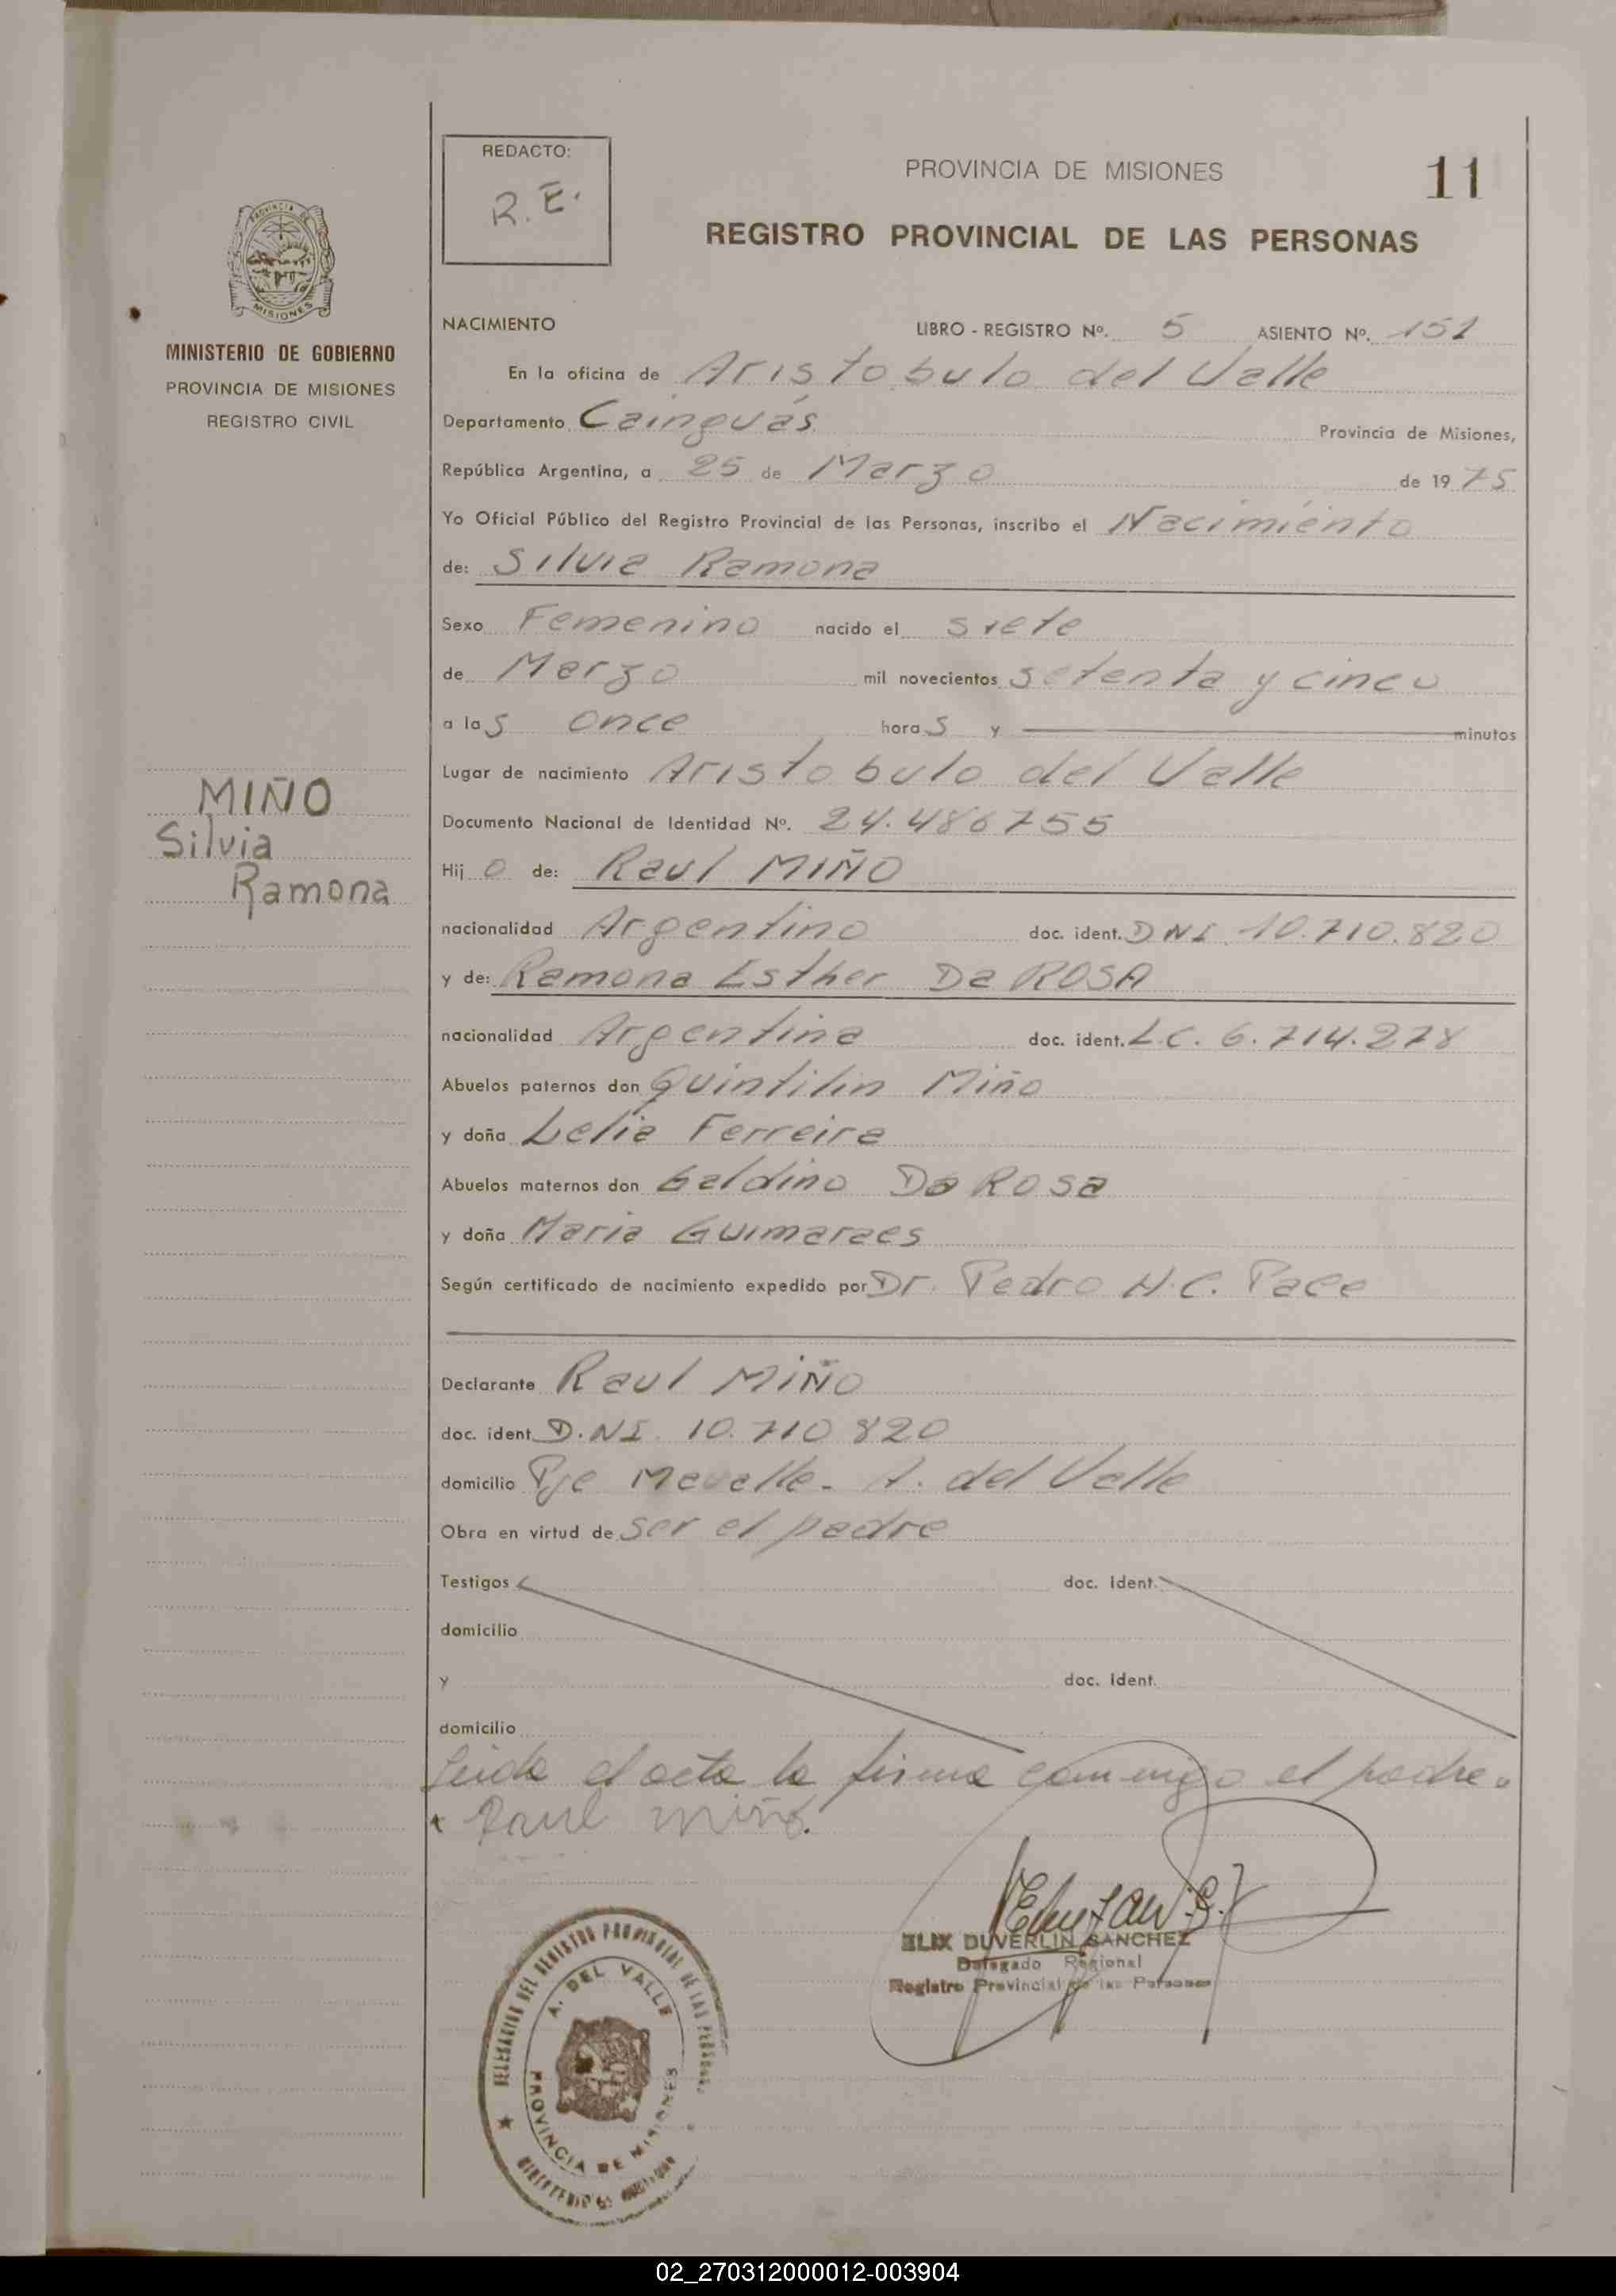 REDACTO:
R.E.
PROVINCIA DE MISIONES
11
REGISTRO PROVINCIAL DE LAS PERSONAS
PROVINCIA DE
MISIONES
MINISTERIO DE GOBIERNO
PROVINCIA DE MISIONES
REGISTRO CIVIL
MIÑO
Silvia
Ramona
NACIMIENTO LIBRO - REGISTRO Nº. 5 ASIENTO Nº. 151
En la oficina de Aristobulo del Valle
Departamento Cainguás Provincia de Misiones,
República Argentina, a 25 de Marzo de 1975
Yo Oficial Público del Registro Provincial de las Personas, inscribo el Nacimiento
de: Silvia Ramona
Sexo Femenino nacido el siete
de Marzo mil novecientos setenta y cinco
a las once horas y minutos
Lugar de nacimiento Aristobulo del Valle
Documento Nacional de Identidad Nº. 24.486755
Hijo de: Raul MIÑO
nacionalidad Argentino doc. ident. DNI 10.710.820
y de: Ramona Esther Da ROSA
nacionalidad Argentina doc. ident. L.C. 6.714.278
Abuelos paternos don Quintilin Miño
y doña Lelia Ferreira
Abuelos maternos don Galdino Da Rosa
y doña Maria Guimaraes
Según certificado de nacimiento expedido por Dr. Pedro H.C. Pace
Declarante Raul MIÑO
doc. ident D.NI. 10.710 820
domicilio Pje A. del Valle
Obra en virtud de ser el padre
Testigos doc. ident.
domicilio
y doc. ident.
domicilio
Leida el acta la firma conmigo el padre.
Raul miño.
ELIX DUVERLIN SANCHEZ
Delegado Regional
Registro Provincial de las Personas
DELEGACION DEL REGISTRO PROVINCIAL DE LAS PERSONAS
A. DEL VALLE
PROVINCIA DE MISIONES
MINISTERIO DE GOBIERNO
02_270312000012-003904